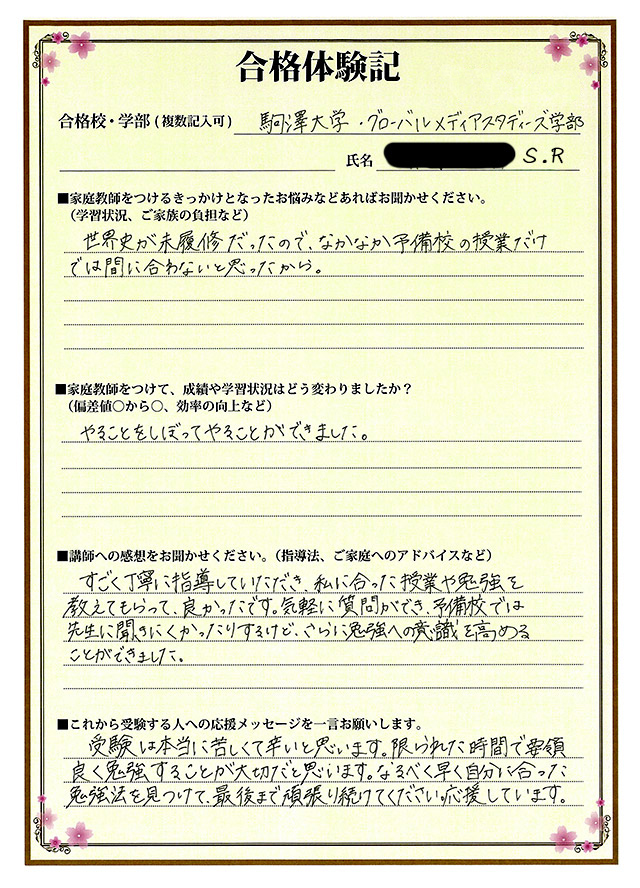 合格体験記
合格校・学部(複数記入可) 駒澤大学・グローバルメディアスタディーズ学部
氏名 S.R
■家庭教師をつけるきっかけとなったお悩みなどあればお聞かせください。
(学習状況、ご家族の負担など)
世界史が未履修だったので、なかなか予備校の授業だけ
では間に合わないと思ったから。
■家庭教師をつけて、成績や学習状況はどう変わりましたか?
(偏差値○から○、効率の向上など)
やることをしぼってやることができました。
■講師への感想をお聞かせください。(指導法、ご家庭へのアドバイスなど)
すごく丁寧に指導していただき、私に合った授業や勉強を
教えてもらって、良かったです。気軽に質問ができ、予備校では
先生に聞きにくかったりするけど、さらに勉強への意識を高める
ことができました。
■これから受験する人への応援メッセージを一言お願いします。
受験は本当に苦しくて辛いと思います。限られた時間で要領
良く勉強することが大切だと思います。なるべく早く自分に合った
勉強法を見つけて、最後まで頑張り続けてください。応援しています。